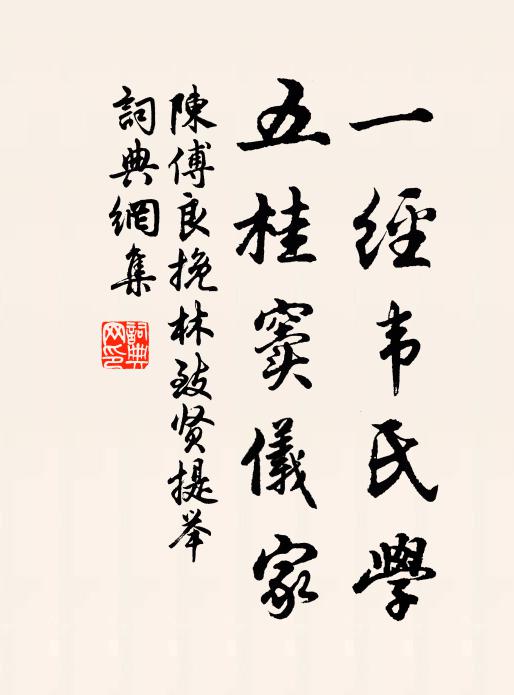 一經韦氏學
五桂窦儀家
陳傅良挽林致贤提举
詞典網集
詞典网印